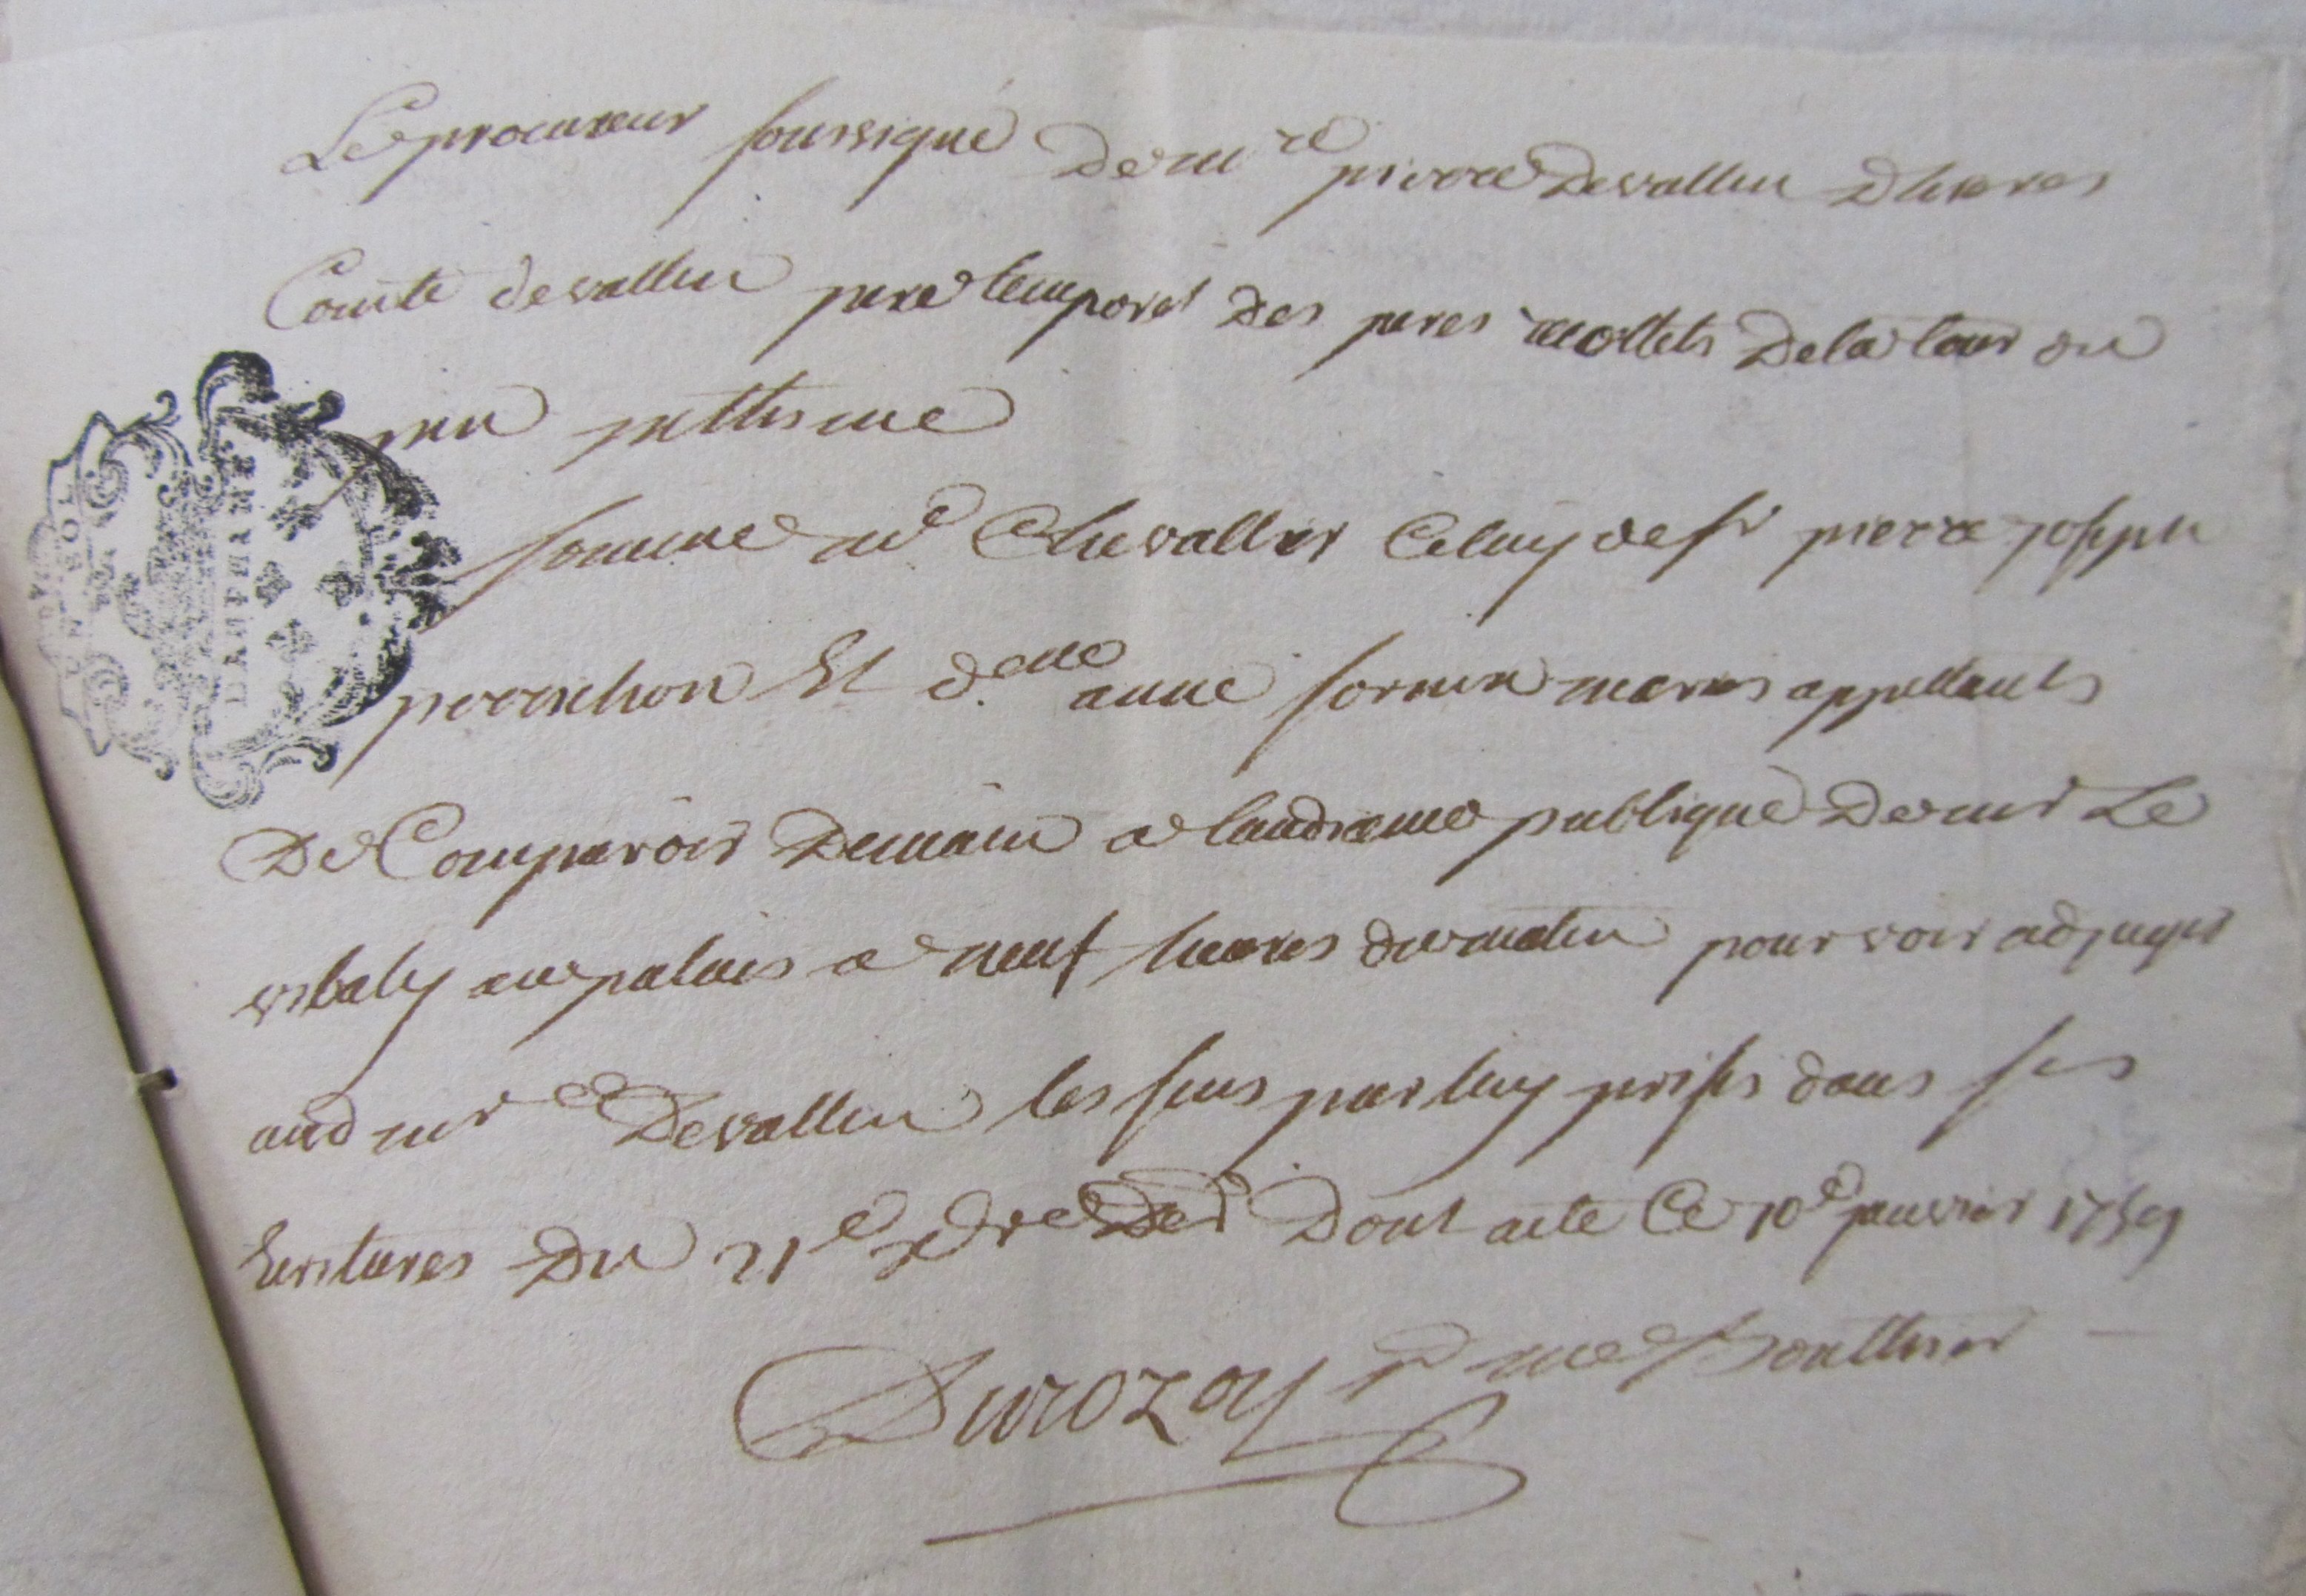 Le procureur soussigné de m.re pierre devallin dhieres
Comte devallin pere temporel des peres recollets de la tour du
pin intthimé
somme m.e Chevallier Celuy de s.r pierre joseph
perrichon Et d.elle anne mariés appellants
De Comparoir Demain a laudiance publique de mr Le
vibaly au palais a neuf heures du matin pour voir adjuger
aud mr Devallin les fins par luy prises dans ses
Ecritures du 21e xbre der.r Dont acte Ce 10e janvier 1759
Durozoy p.r me Bontthier
DAUPHINE
SOL